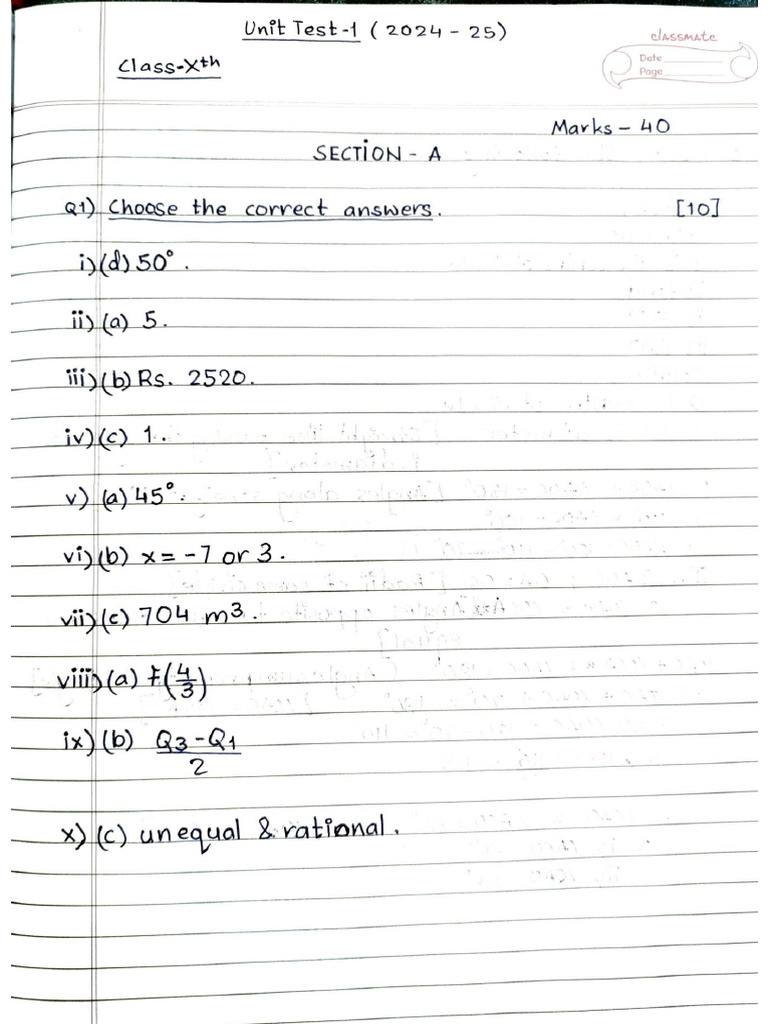 Unit Test-1 (2024 - 25)
classmate
Date
Page
Class-Xth
Marks - 40
SECTION - A
Q1) Choose the correct answers. [10]
i) (d) 50°.
ii) (a) 5.
iii) (b) Rs. 2520.
iv) (c) 1.
v) (a) 45°.
vi) (b) x = -7 or 3.
vii) (c) 704 m³.
viii) (a) f(4/3)
ix) (b) Q3-Q1/2
x) (c) unequal & rational.